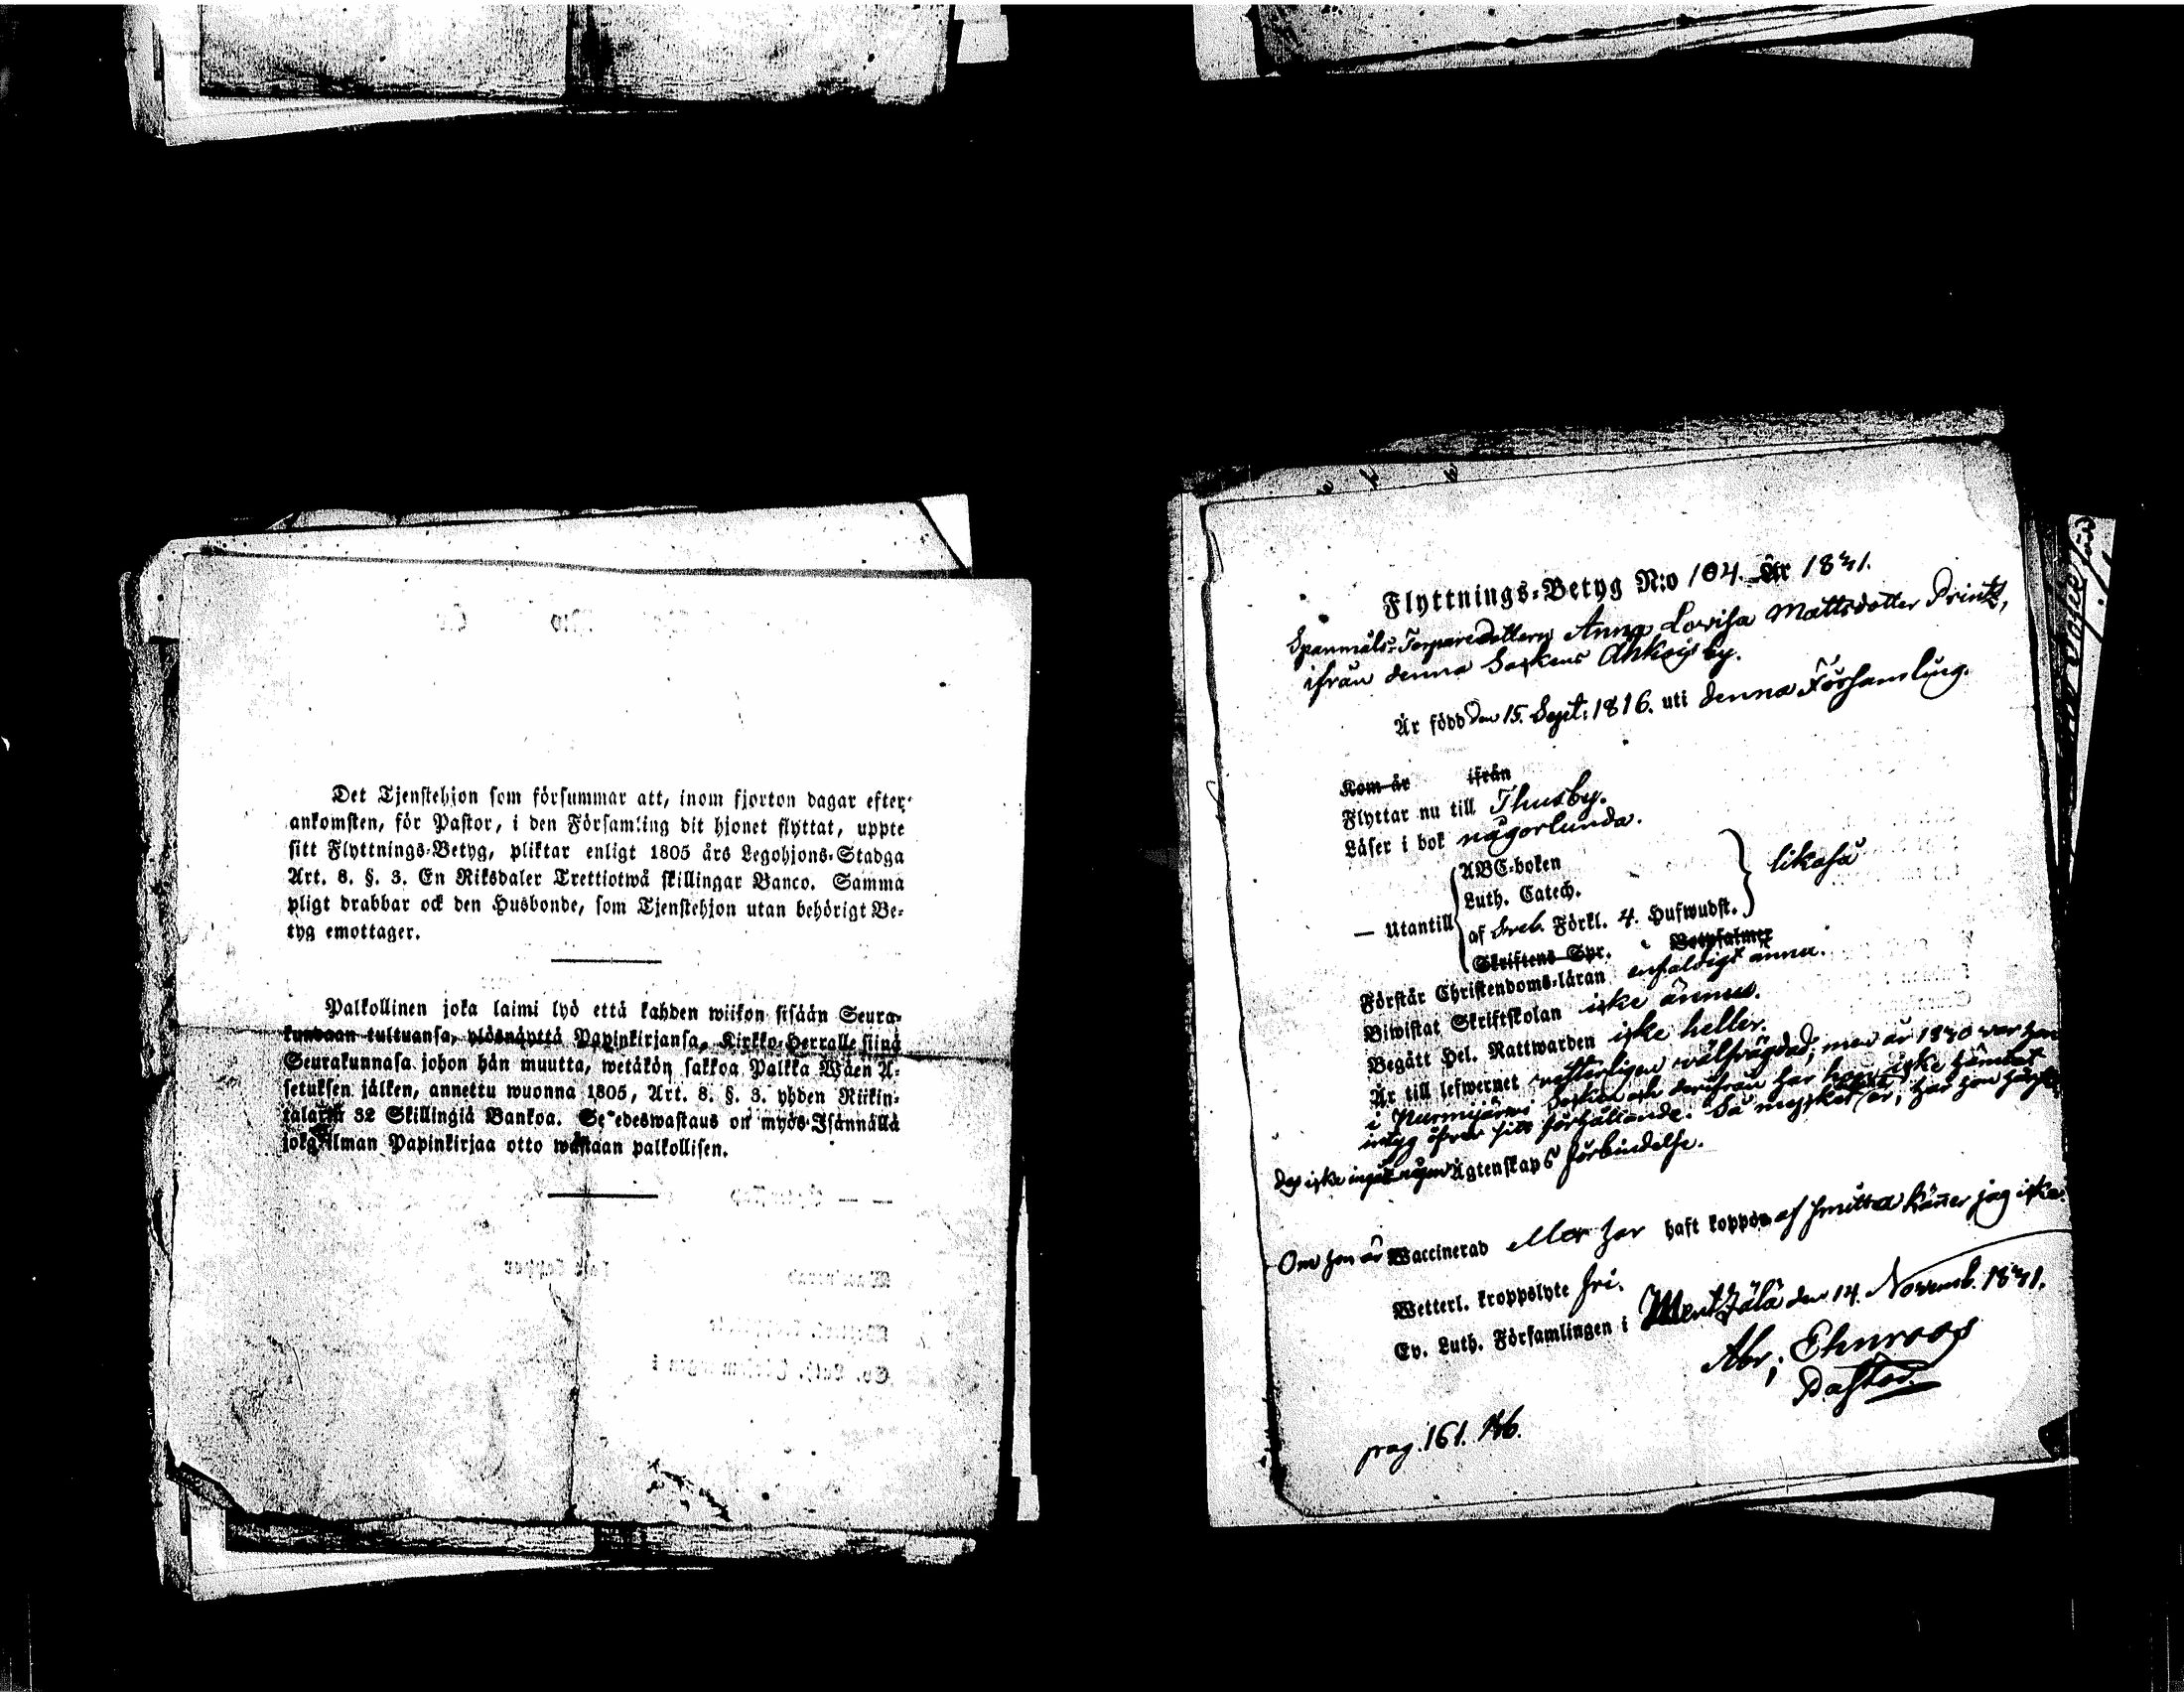 Det Tjenstehjon som försummar att, inom fjorton dagar efter
ankomsten, för Pastor, i den Församling dit hjonet flyttat, uppte
sitt Flyttnings-Betyg, pliktar enligt 1805 års Legohjons-Stadga
Art. 8. §. 3. En Riksdaler Trettiotwå skillingar Banco. Samma
pligt drabbar ock den Husbonde, som Tjenstehjon utan behörigt Be-
tyg emottager.
Palkollinen joka laimi lyö että kahden wiikon sisään Seura-
kundaan tultuansa, ylösnäyttä Papinkirjansa, Kirkko-Herralle siinä
Seurakunnasa johon hän muutta, wetäkön sakkoa Palkka Wäen A-
setuksen jälken, annettu wuonna 1805, Art. 8. §. 3. yhden Riikin-
talarin 32 Skillingiä Bankoa. Se edeswastaus on myös Isännällä
joka ilman Papinkirjaa otto wastaan palkollisen.
Flyttnings-Betyg N:o 104. År 1831.
Spanmåls-Torparedottern Anna Lovisa Mattsdotter Printz,
ifrån denna Sockens by.
Är född den 15. Sept: 1816. uti denna Församling.
Kom år ifrån
Flyttar nu till Thusby.
Läser i bok någorlunda.
ABC-boken
Luth. Catech.
— Utantill af Sveb. Förkl. 4. Hufwudst. likaså
Skriftens Spr. Botpsalmer
Förstår Christendoms-läran enfaldigt ännu.
Biwistat Skriftskolan icke ännu.
Begått Hel. Nattwarden icke heller.
Är till lefwernet wälfrägdad; men år 1830 var hon
i Nurmijärvi Socken och derifrån har hon icke hämtat
intyg öfver sitt förhållande. Så mycket är, har hon
icke ingått någon Ägtenskaps förbindelse.
Om hon är Waccinerad eller har haft koppor af smitta känner jag icke.
Wetterl. kroppslyte fri.
Ev. Luth. Församlingen i Mentzälä den 14. Novemb. 1831.
Abr; Ehnroos
Pastor.
pag. 161.